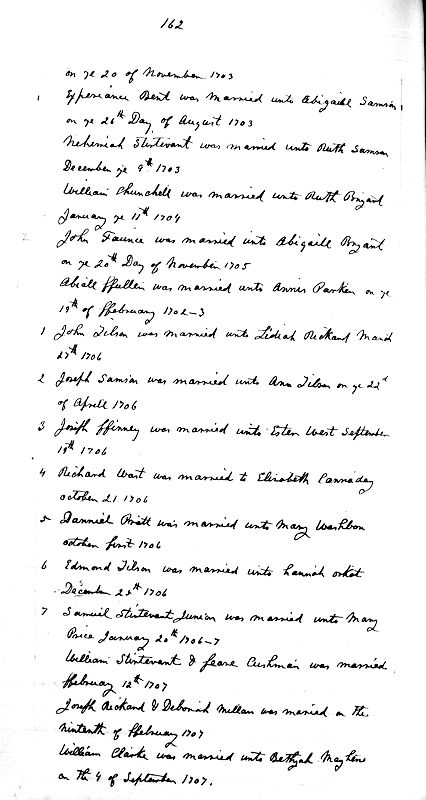 162
on ye 20 of November 1703
Experiance Bent was Married unto Abigaill Samson
on ye 26th Day of August 1703
Nehemiah Sturtevant was married unto Ruth Samson
December ye 9th 1703
William Churchell was married unto Ruth Bryant
January ye 11th 1704
John Faunce was married unto Abigaill Bryant
on ye 20th Day of November 1705
Abiell ffullen was married unto Annis Parken on ye
19th of ffebruary 1702-3
1 John Tilson was married unto Lidiah Rickard March
27th 1706
2 Joseph Samson was married unto Ann Tilson on ye 22d
of Aprill 1706
3 Joseph ffinney was married unto Ester West September
19th 1706
4 Richard Wast was married to Elizabeth Cannaday
october 21 1706
5 Danniel Pratt was married unto Mary Washbon
october first 1706
6 Edmond Tilson was married unto hannah orkot
December 22th 1706
7 Samuel Sturtevant Junior was married unto Mary
Price January 20th 1706-7
William Sturtevant & feare Cushman was married
ffebruary 12th 1707
Joseph Rickard & Deborah Mellan was married on the
ninteth of ffebruary 1707
William Clarke was married unto Bethyah Mayhew
on th 4 of September 1707.